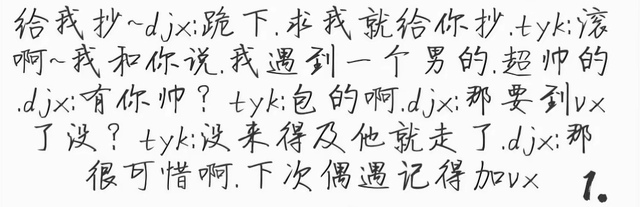 给我抄~djx:跪下.求我就给你抄.tyk:滚
啊~我和你说.我遇到一个男的.超帅的
.djx:有你帅？tyk:包的啊.djx:那要到vx
了没？tyk:没来得及他就走了.djx:那
很可惜啊.下次偶遇记得加vx 1.